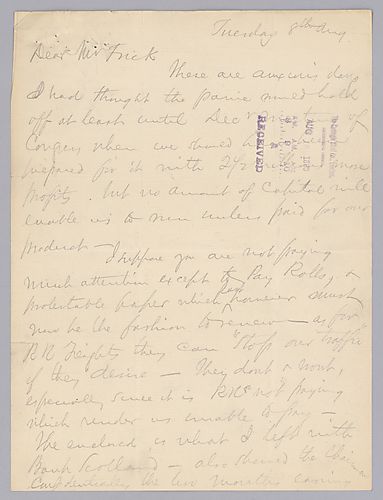 Tuesday 8th Aug
Dear Mr Frick
These are anxious days
I had thought the panic would hold
off at least until Dec of
Congress when we should
prepared for it with 2½ more
profits. but no amount of Capital will
enable us to run unless paid for our
product—
I suppose you are not paying
much attention except to Pay Rolls, &
protestable paper which however must
now be the fashion to renew — as for
RR Freights they can "stop our traffic
if they desire — They dont & wont,
especially since it is RRs not paying
which render us unable to pay —
The enclosed is what I left with
Bank Scotland — also showed the Chairman
Confidentially the two months earning
RECEIVED
AUG